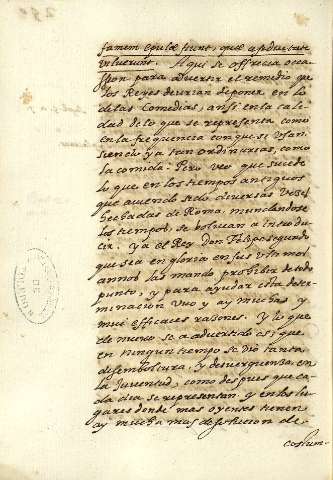 famem epulæ sunt, quæ
voluerunt. Aqui se offrecia oca
ssion para advertir el remedio que
los Reyes devrian deponer en lo
delas Comedias, ansi en la cali
dad de lo que se representa como
en la frequencia con que se usan
siendo ya tan ordinarias, como
la comida. Pero veo que sucede
lo que en los tiempos antiguos
que aviendo sido diversas vezes
hechadas de Roma, mundandose
los tiempos, se bolvian a introdu
cir. ya el Rey Don Felipe segundo
que sea en gloria en sus ultimos
annos las mando prohibir de todo
punto, y para ayudar esta deter
minacion uvo y ay muchas y
mui efficaces razones. y lo que
de nuevo se a advertido es, que
en ningun tiempo se vio tanta
disemboltura, y desverguenza en
la Juventud, como despues que ca
da dia se representan. y en los lu
gares donde mas oyentes tienen
ay mucha mas destruicion de
costum-